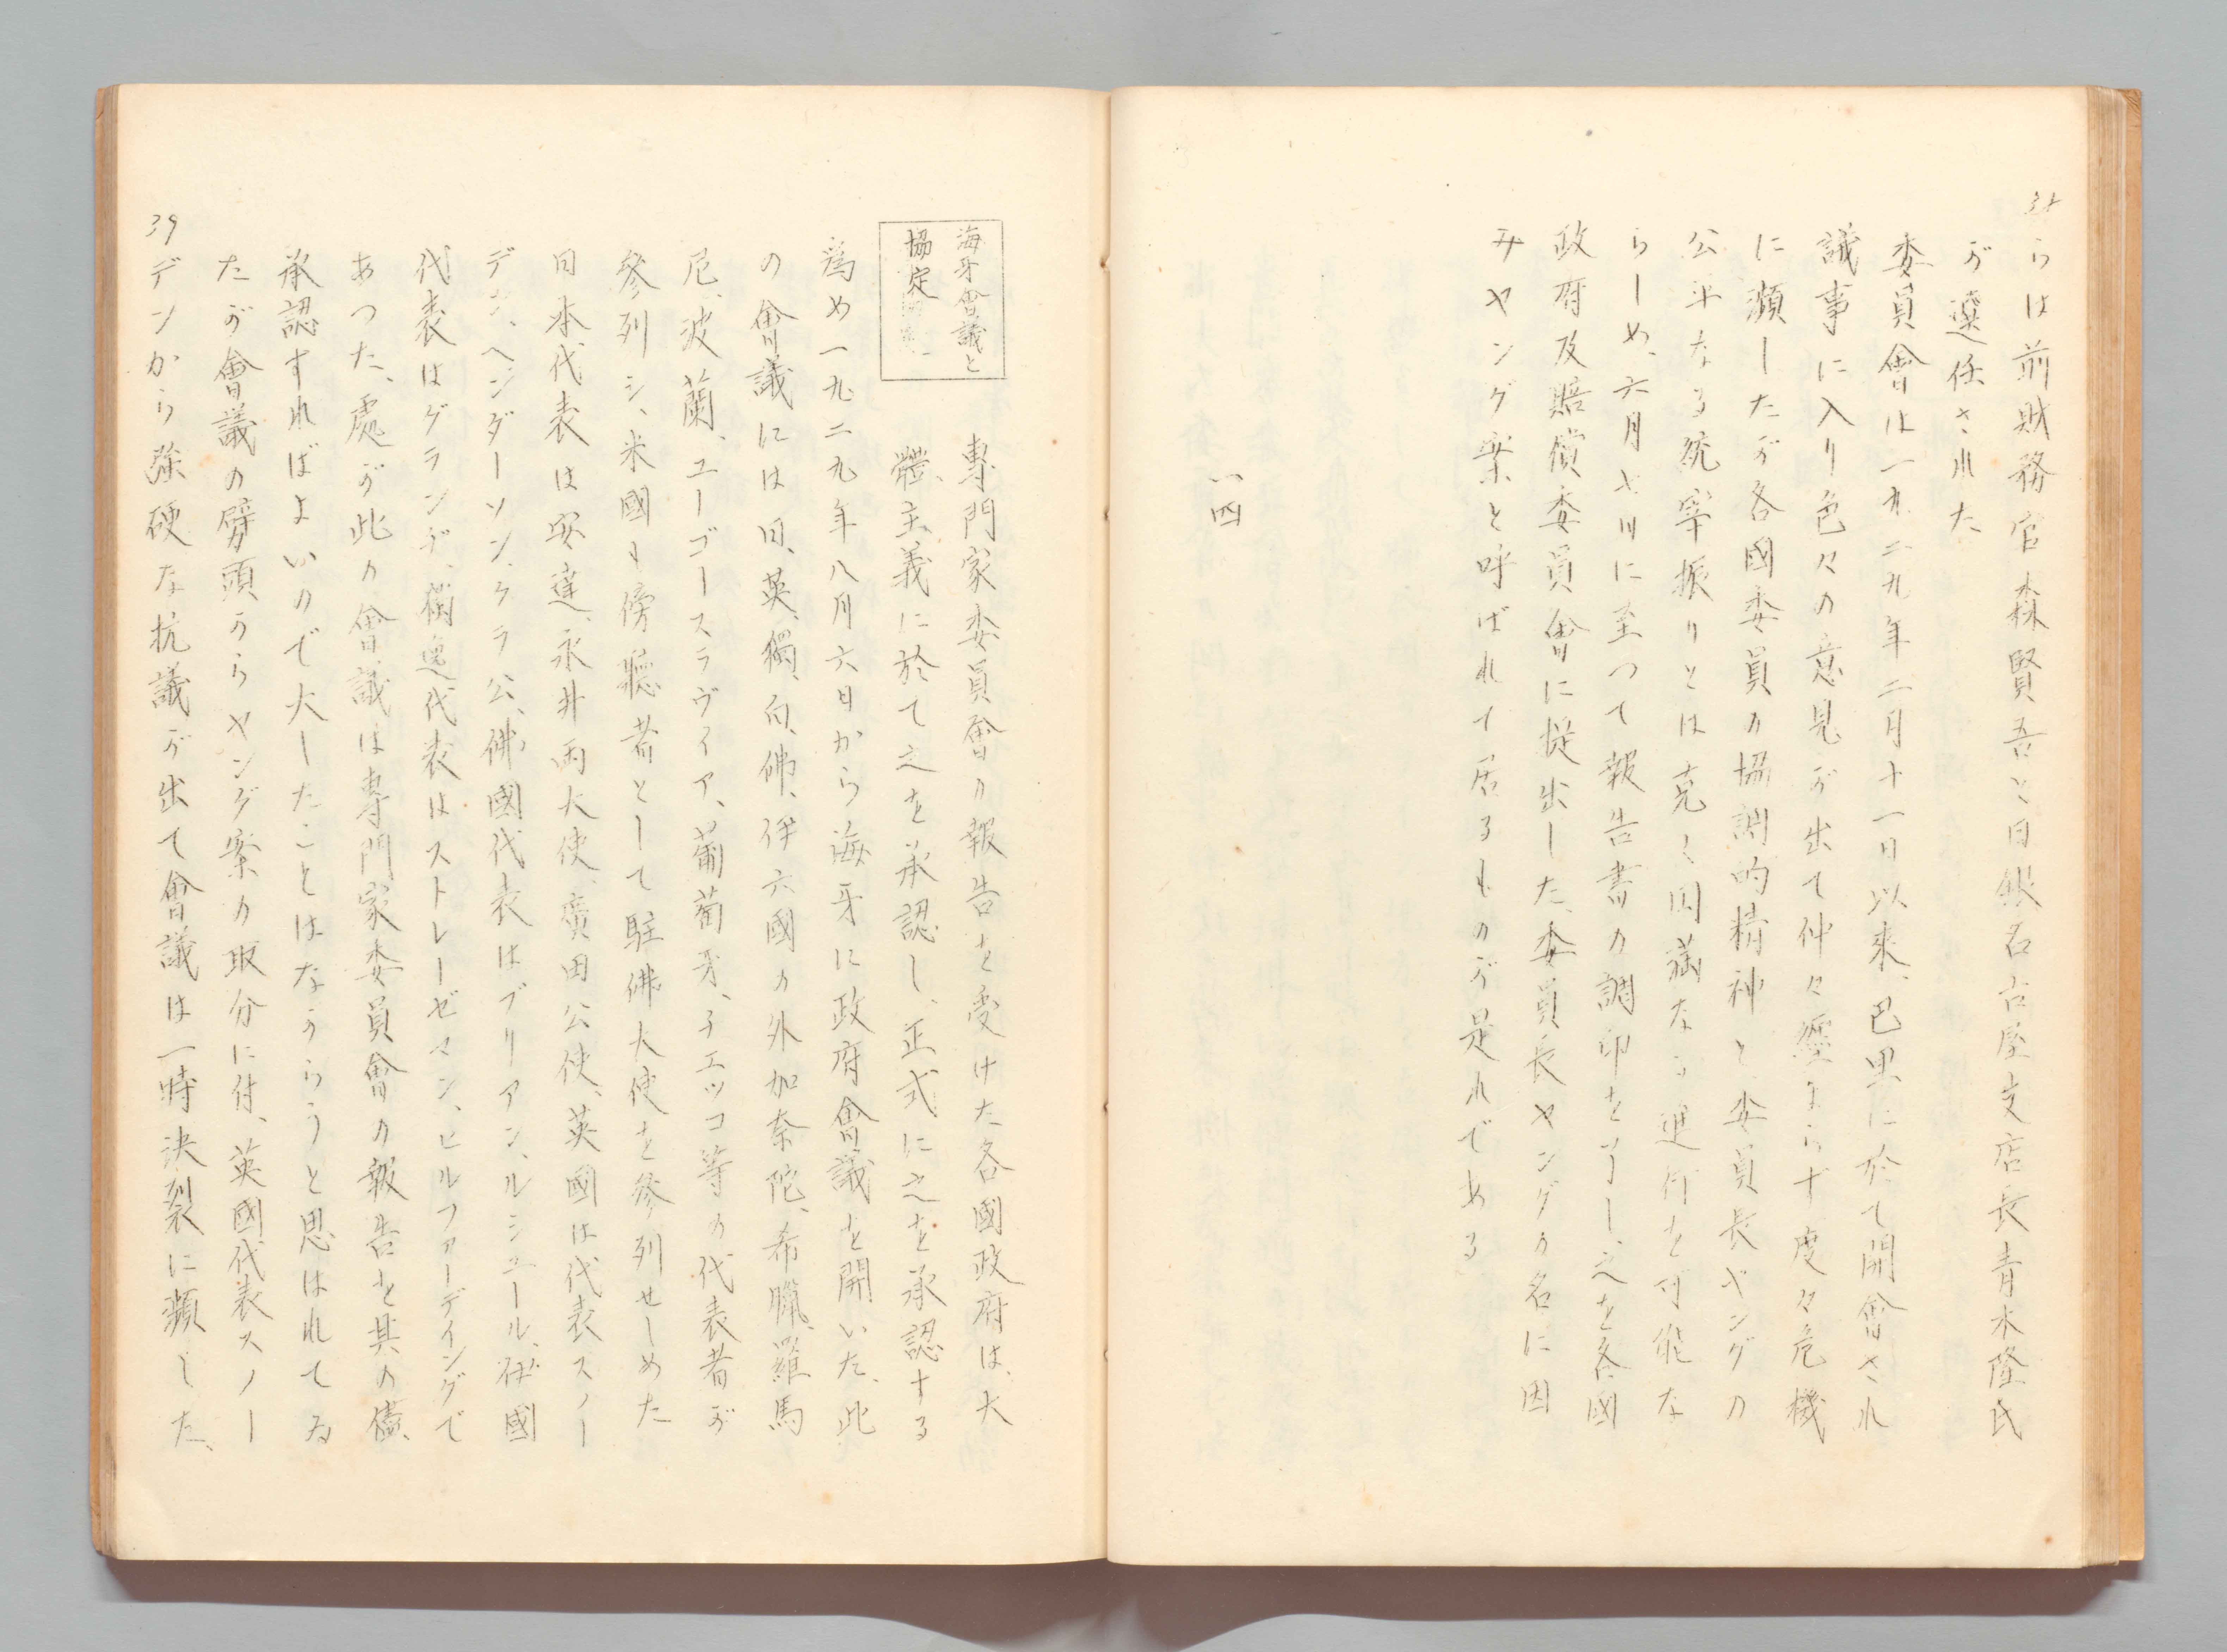 38
らは前財務官森賢吾と日銀名古屋支店長青木隆氏
が選任された
委員會は一九二九年二月十一日以来、巴里に於て開會され
議事に入り色々の意見が出て仲々纒まらず度々危機
に瀕したが各國委員の協調的精神と委員長ヤングの
公平なる統宰振りとは克く圓滿なる進行を可能な
らしめ、六月七日に至つて報告書の調印を了し、之を各國
政府及賠償委員會に提出した、委員長ヤングの名に因
みヤング案と呼ばれて居るものが是れである
一四
海牙會議と
協定
專門家委員會の報告を受けた各國政府は、大
體、主義に於て之を承認し、正式に之を承認する
爲め一九二九年八月六日から海牙に政府會議を開いた、此
の會議には日、英、獨、白、佛、伊六國の外加奈陀、希臘、羅馬
尼、波蘭、ユーゴースラヴイア、葡萄牙、チエツコ等の代表者が
參列シ、米國も傍聽者として駐佛大使を參列せしめた
日本代表は安達、永井兩大使、廣田公使、英國は代表スノー
デン、ヘンダーソン、グラ公、佛國代表はブリアン、ルシユール、伊國
代表はグランヂ、獨逸代表はストレーゼマン、ヒルファーディングで
あつた、處が此の會議は專門家委員會の報告を其の儘、
承認すればよいので大したことはなからうと思はれてゐ
たが會議の劈頭からヤング案の取分に付、英國代表スノー
39
デンから強硬な抗議が出て會議は一時決裂に瀕した、